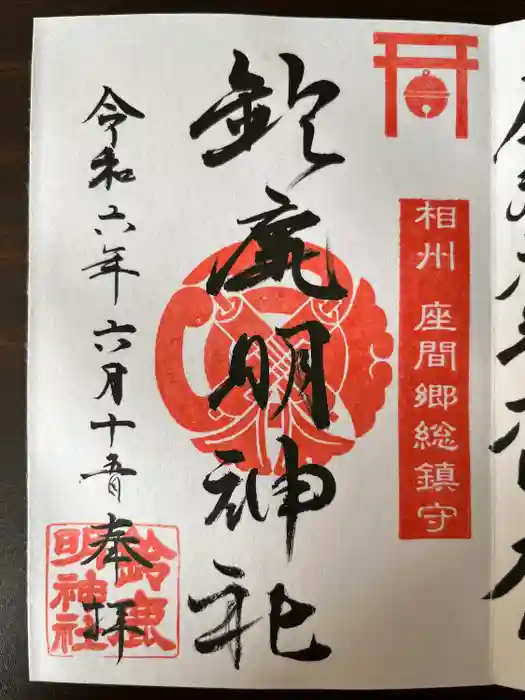 相州 座間郷総鎮守
鈴鹿明神社
令和六年六月十五日
奉拝
鈴鹿
明神社